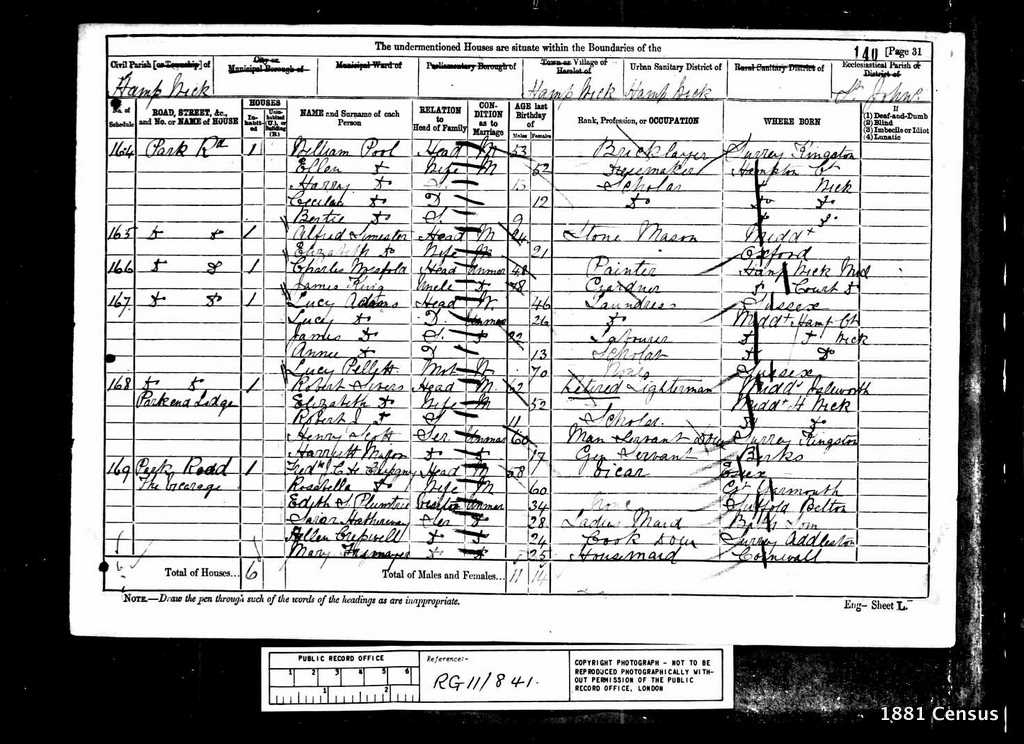 140 [Page 31
The undermentioned Houses are situate within the Boundaries of the
Civil Parish [or Township] of City or Municipal Borough of Municipal Ward of Parliamentary Borough of Town or Village or Hamlet of Urban Sanitary District of Rural Sanitary District of Ecclesiastical Parish or District of
Hamp Wick Hamp Wick Hamp Wick St Johns
No. of Schedule ROAD, STREET, &c., and No. or NAME of HOUSE HOUSES Inhabited Uninhabited (U.), or Building (B.) NAME and Surname of each Person RELATION to Head of Family CONDITION as to Marriage AGE last Birthday of Males Females Rank, Profession, or OCCUPATION WHERE BORN If (1) Deaf-and-Dumb (2) Blind (3) Imbecile or Idiot (4) Lunatic
164 Park Rd 1 William Pool Head M 53 Bricklayer Surrey Kingston
Ellen Do Wife M 52 Hampton Ct
Harry Do Scholar Do Wick
Do D 12 Do Do Do
Bertie Do S 9 Do
165 Do Do 1 Alfred Head M 24 Stone Mason Middx
Elizabeth Do Wife M 21 Oxford
166 Do Do 1 Charles Head Unmar 48 Painter Hamp Wick Mid
James King Uncle Do 78 Gardner Do Court Do
167 Do Do 1 Lucy Adams Head W 46 Laundress Sussex
Lucy Do D Unmar 26 Do Midd Hamp Ct
James Do S Do 22 Labourer Do Do Wick
Annie Do D 13 Scholar Do Do
Lucy Pellett Mot W 70 Sussex
168 Do Do 1 Robert Head M 62 Retired Lighterman Midd Isleworth
Parkend Lodge Elizabeth Do Wife M 52 Midd H Wick
Robert J Do S 11 Scholar Do
Henry Scott Ser Unmar 60 Man Servant Dom Surrey Kingston
Harriett Mason Do Do 17 Gen Servant Berks
169 Park Road 1 Fredk C H Head M 58 Vicar Essex
The Vicarage Rosabella Do Wife M 60 Gt Yarmouth
Edith S Plumtre Visitor Unmar 34 Suffolk Belton
Sarah Hathaway Ser Do 28 Ladies Maid Som
Ellen Do Do 24 Cook Dom Surrey Addleston
Mary Do Do 25 Housemaid Cornwall
Total of Houses... 6 Total of Males and Females... 11 14
NOTE.—Draw the pen through such of the words of the headings as are inappropriate.
Eng— Sheet L.
PUBLIC RECORD OFFICE
1 2 3 4 5 6
1 2
Reference:-
RG 11/841.
COPYRIGHT PHOTOGRAPH - NOT TO BE
REPRODUCED PHOTOGRAPHICALLY WITH-
OUT PERMISSION OF THE PUBLIC
RECORD OFFICE, LONDON
1881 Census